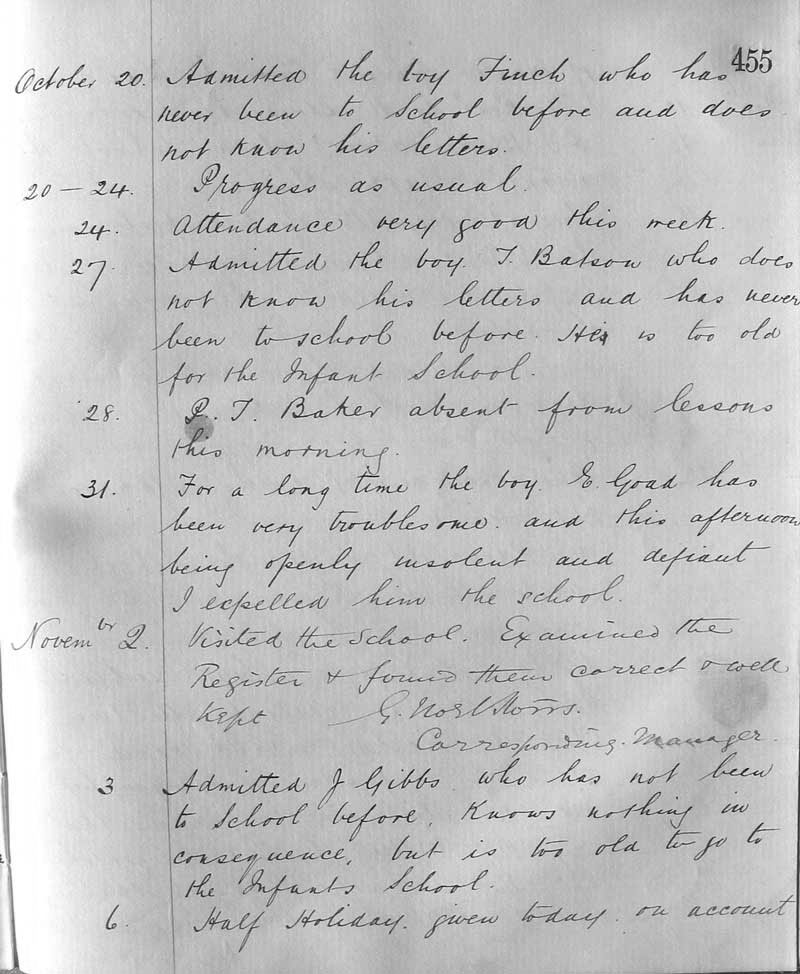 455
October 20. Admitted the boy Finch who has
never been to School before and does
not know his letters.
20 — 24. Progress as usual.
24. Attendance very good this week.
27. Admitted the boy. T. Batson who does
not know his letters and has never
been to school before. He is too old
for the Infant School.
28. P. T. Baker absent from lessons
this morning.
31. For a long time the boy. E. Goad has
been very troublesome. and this afternoon
being openly insolent and defiant
I expelled him the school.
Novembr 2. Visited the School. Examined the
Register & found them correct & well
Kept G.
Corresponding. Manager.
3 Admitted J Gibbs who has not been
to School before. Knows nothing in
consequence, but is too old to go to
the Infants School.
6. Half Holiday. given today. on account